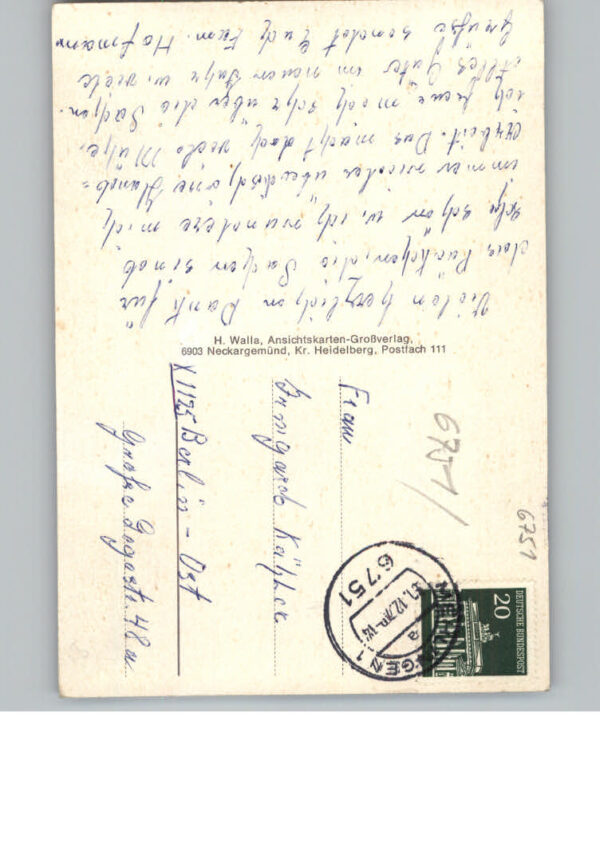 Vielen herzlichen Dank für
das Päckchen, die Sachen sind
sehr schön u. ich wundere mich
immer wieder über diese Hand=
arbeit. Das macht doch viele Mühe,
ich freue mich sehr über die Sachen.
Alles Gute im neuen Jahr u. viele
Grüße sendet Euch Fam. Hofmann
H. Walla, Ansichtskarten-Großverlag,
6903 Neckargemünd, Kr. Heidelberg, Postfach 111
20
DEUTSCHE BUNDESPOST
6751
a
6751
6751/
Frau
Irmgard
X 1125 Berlin - Ost
Große 48 a